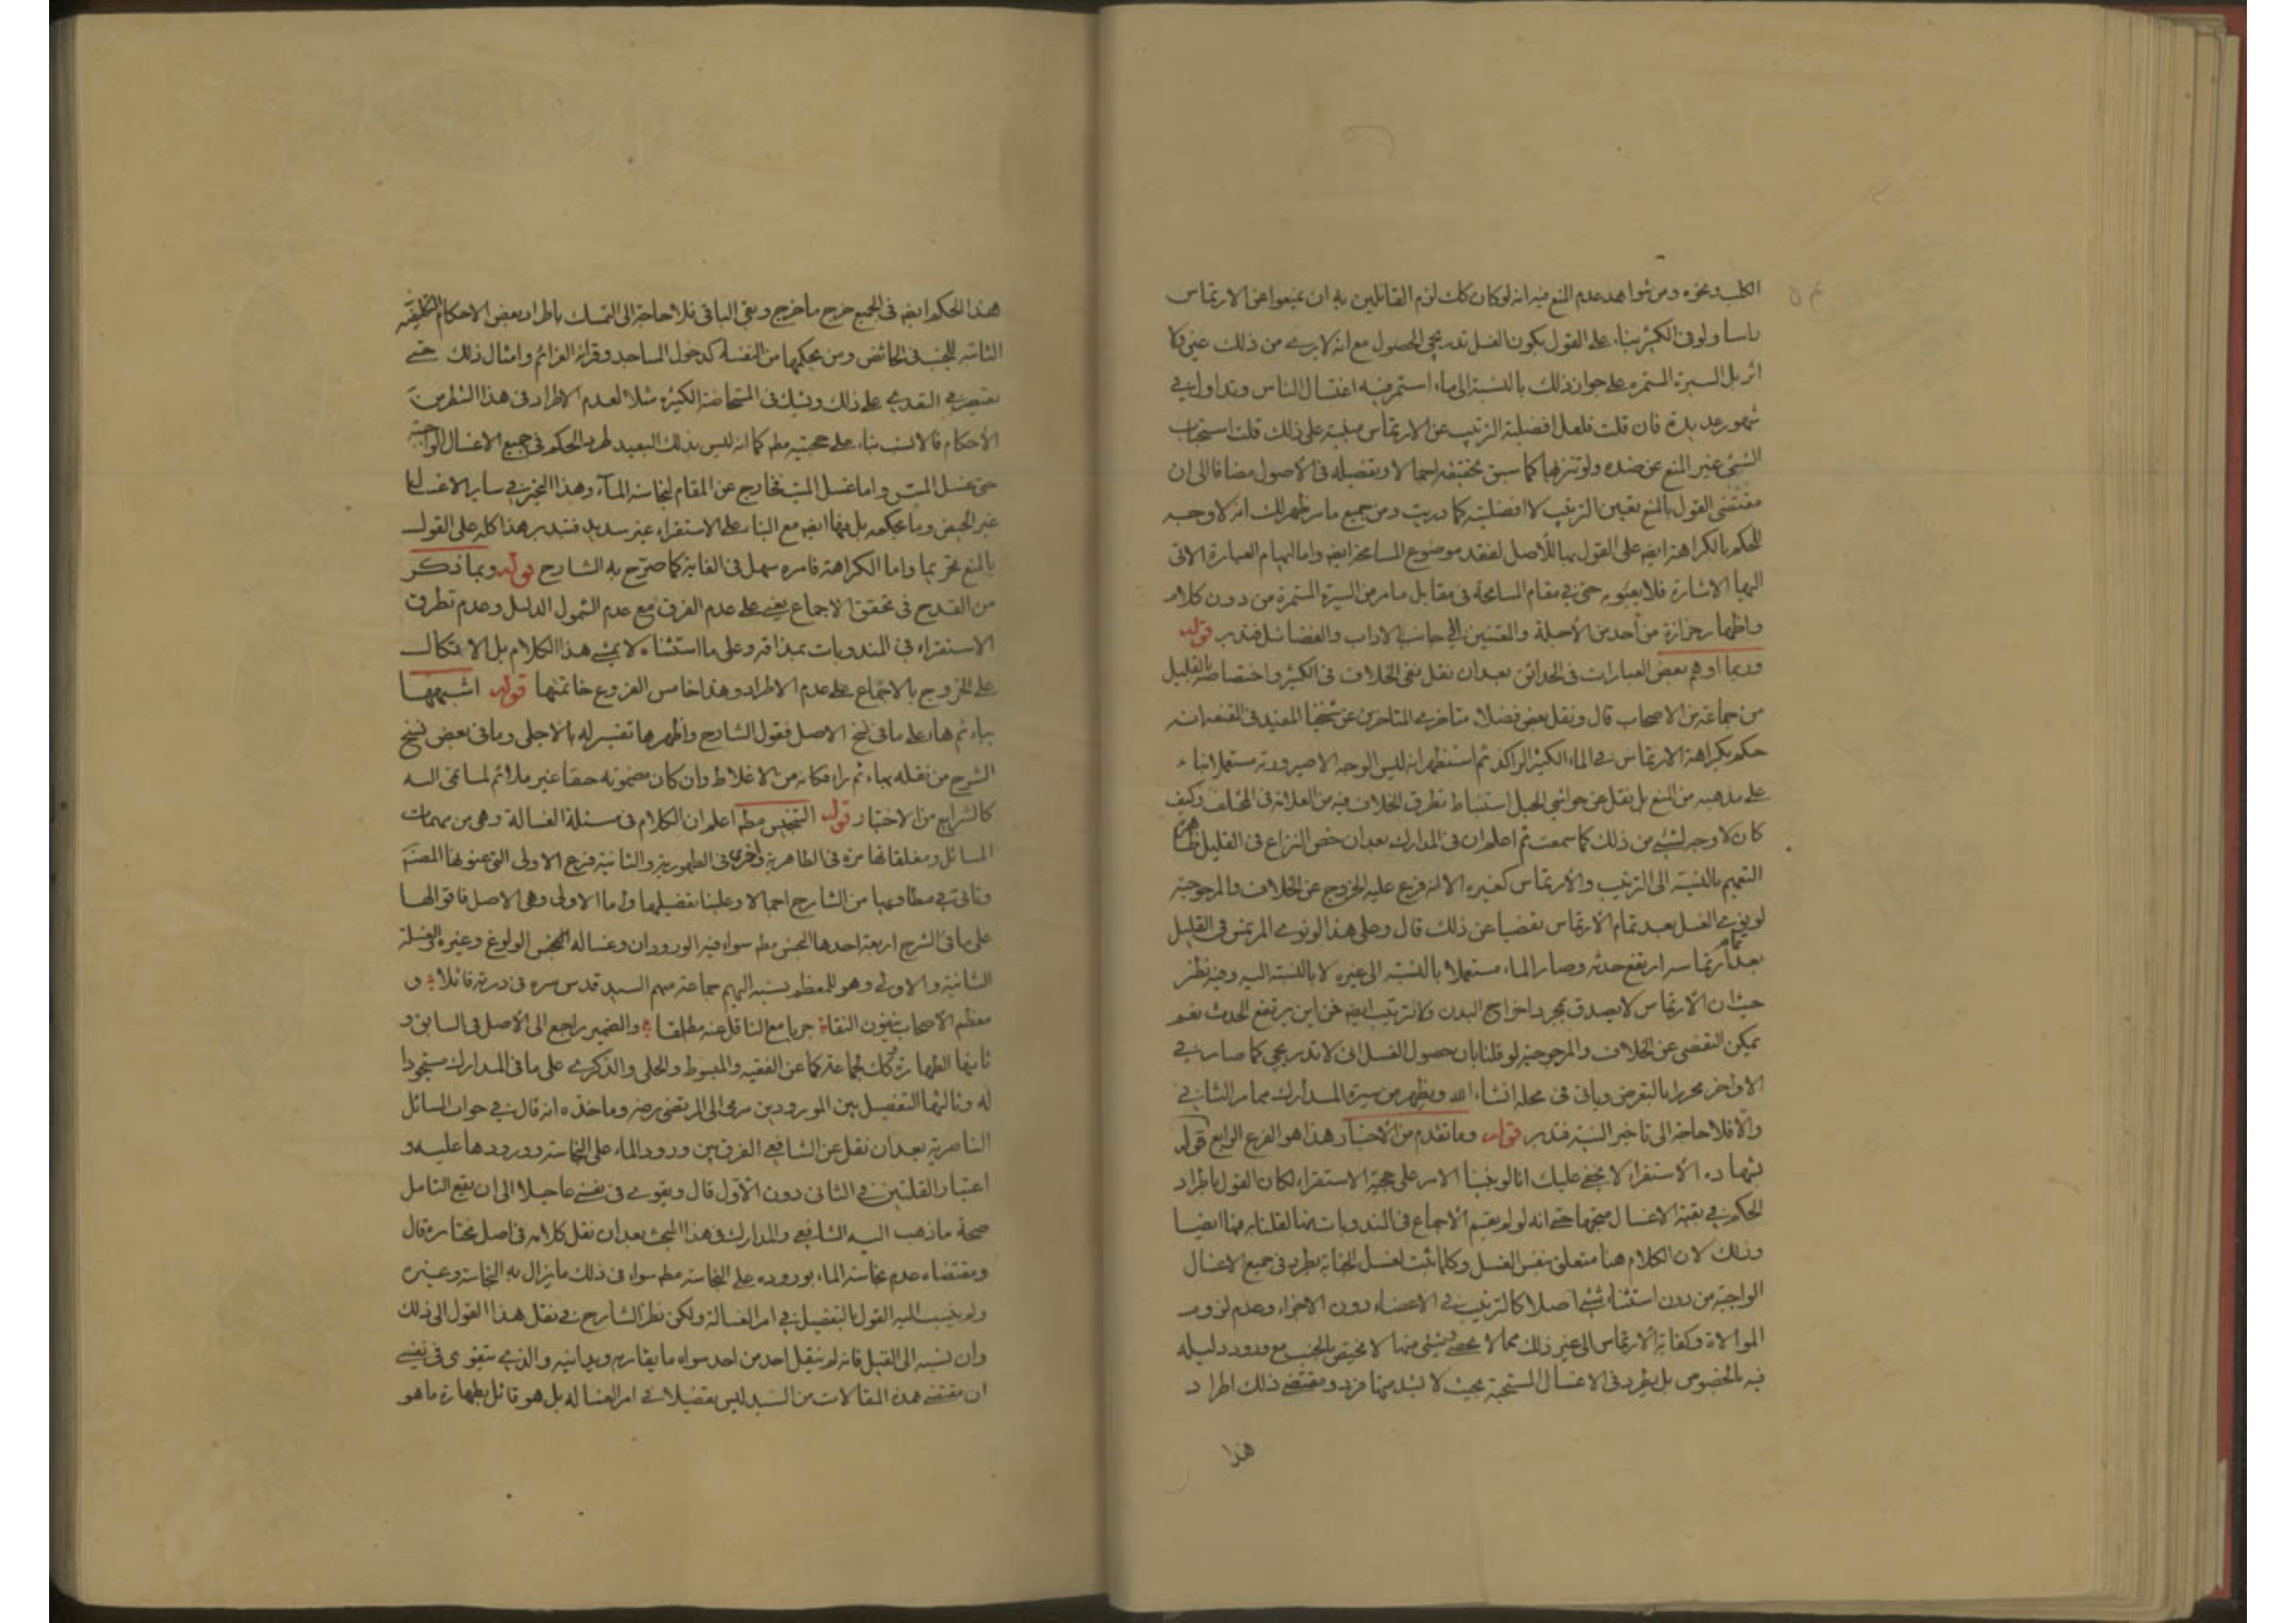 الكلب ونحوه ومن شواهد عدم المنع فيه انه لو كان كك لزم القائلين به ان يمنعوا عن الارتماس
راسا ولو فى الكثير بناء على القول بكون الغسل تدريجى الحصول مع انه لا يرى من ذلك عين ولا
اثر بل السيرة المستمره على جواز ذلك بالنسبة الى ماء استمر فيه اغتسال الناس وتداول فى
شهور عديدة فان قلت فلعل افضلية الترتيب عن الارتماس مبنية على ذلك قلت استحباب
الشئ غير المنع عن ضده ولو تنزيها كما سبق تحقيقه اجمالا وتفصيله فى الاصول مضافا الى ان
مقتضى القول بالمنع تعيين الترتيب لا افضليته كما دريت ومن جميع ما مر ظهر لك انه لا وجه
للحكم بالكراهة ايضه على القول بها للاصل لفقد موضوع المسامحة ايضه واما ايهام العبارة الاتى
اليها الاشارة فلا يعبؤ به حتى فى مقام المسامحة فى مقابل ما مر من السيرة المستمرة من دون كلام
واظهار حزازة من أحد من الأجلة والمعتنين الى جانب الاداب والفضائل فتدبر قوله
وربما اوهم بعض العبارات فى الحدائق بعد ان نقل نفى الخلاف فى الكثير واختصاصه بالقليل
من جماعة من الاصحاب قال ونقل بعض فضلاء متاخرى المتاخرين عن شيخنا المفيد فى المقنعه انه
حكم بكراهة الارتماس فى الماء الكثير الراكد ثم استظهر انه ليس الوجه الا صيرورته مستعملا بناء
على مذهبه من المنع بل نقل عن حواشى الحبل استنباط تطرق الخلاف فيه من العلامة فى المختلف وكيف
كان لا وجه لشئ من ذلك كما سمعت ثم اعلم ان فى المدارك بعد ان خص النزاع فى القليل
التعميم بالنسبة الى الترتيب والارتماس كغيره الا انه فرع عليه الخروج عن الخلاف والمرجوحية
لو نوى الغسل بعد تمام الارتماس تفصيا عن ذلك قال وعلى هذا لو نوى المرتمس فى القليل
بعد تمام ارتماسه ارتفع حدثه وصار الماء مستعملا بالنسبة الى غيره لا بالنسبة اليه وفيه نظر
حيث ان الارتماس لا يصدق بمجرد اخراج البدن ولا ترتيب ايضه فمن اين يرتفع الحدث نعم
يمكن التفصى عن الخلاف والمرجوحية لو قلنا بان حصول الغسل انى لا تدريجى كما صار فى
الاواخر محررا بالتعرض وياتى فى محله انشاء الله ويظهر من سيرة المدارك مما مر الثانى
والا فلا حاجة الى تاخير النية فتدبر قوله وما تقدم من الأخبار هذا هو الفرع الرابع قوله
بشهادة الاستقراء لا يخفى عليك انا لو بنينا الامر على حجية الاستقراء لكان القول باطراد
الحكم فى بقية الاغسال متجها حتى انه لو لم يقم الاجماع فى المندوبات منها لقلنا به فيها ايضا
وذلك لان الكلام هنا متعلق بنفس الغسل وكلما ثبت لغسل الجنابة يطرد فى جميع الاغسال
الواجبة من دون استثناء شئ اصلا كالترتيب فى الاعضاء دون الاجزاء وعدم لزوم
الموالاة وكفاية الارتماس الى غير ذلك مما لا يحصى وشئ منها لا يختص بالجنب مع ورود دليله
فيه بالخصوص بل يطرد فى الاغسال المستحبة بحيث لا يشذ منها فرد ومقتضى ذلك اطراد
هذا
هذا الحكم ايضه فى الجميع خرج ما خرج وبقى الباقى فلا حاجة الى التمسك باطراد بعض الاحكام التكليفيه
الثابته للجنب فى الحائض ومن بحكمها من النفساء كدخول المساجد وقرائة العزائم وامثال ذلك حتى
نقتصر فى التعدى على ذلك ونشك فى المستحاضة الكثيرة مثلا لعدم الاطراد فى هذا الشطر من
الأحكام فالانسب بناء على حجيته مطه كما انه ليس بذلك البعيد طرد الحكم فى جميع الاغسال الواجبة
حتى غسل المس واما غسل الميت فخارج عن المقام لنجاسة الماء وهذا التجزى ساير الاغسال
غير الحيض وما بحكمه بل فيها ايضه مع البناء على الاستقراء غير سديد فتدبر هذا كله على القول
بالمنع تحريما واما الكراهة فامره سهل فى الغاية كما صرح به الشارح قوله وبما ذكر
من القدح فى تحقق الاجماع يعنى على عدم الفرق مع عدم الشمول الدليل وعدم تطرق
الاستقراء فى المندوبات بمذاقه وعلى ما استثناه لا يمشى هذا الكلام بل الاتكال
على الخروج بالاجماع على عدم الاطراد وهذا خامس الفروع خاتمتها قوله اشبهها
بباء ثم هاء على ما فى نسخ الاصل فقول الشارح واظهرها تفسير له بالاجلى وما فى بعض نسخ
الشرح من نقله بهاء ثم راء فكانه من الاغلاط وان كان مضمونه حقا غير ملائم لما نحى اليه
كالشرايع من الاختيار قوله التنجيس مطه اعلم ان الكلام فى مسئلة الغسالة وهى من مهمات
المسائل ومغلقاتها مرة فى الطاهرية واخرى فى الطهورية والثانية فرع الاولى التى عنونها المصنف
وتاتى فى مطاويها من الشارح اجمالا وعلينا تفصيلها واما الاولى وهى الاصل فاقوالها
على ما فى الشرح اربعة احدها النجس مطه سواء فيه الورودان وغسالة النجس الولوغ وغيره والغسلة
الثانية والاولى وهو للمعظم نسبه اليهم جماعة منهم السيد قدس سره فى درته قائلا و
معظم الاصحاب ينفون النقاء جريا مع الناقل عنه مطلقا والضمير راجع الى الاصل فى السابق و
ثانيها الطهارة كك لجماعة كما عن الفقيه والمبسوط والحلى والذكرى على ما فى المدارك مستجودا
له وثالثها التفصيل بين المورودين مرعى الى المرتضى رضه وماخذه انه قال فى جواب المسائل
الناصرية بعد ان نقل عن الشافعى الفرق بين ورود الماء على النجاسة وورودها عليه و
اعتبار القلتين فى الثانى دون الأول قال ويقوى فى نفسى عاجلا الى ان يقع التامل
صحة ما ذهب اليه الشافعى والمدارك فى هذا المبحث بعد ان نقل كلامه فى اصل مختاره قال
ومقتضاه عدم نجاسة الماء بوروده على النجاسة مطه سواء فى ذلك ما يزال به النجاسة وغيره
ولم ينسب اليه القول بالتفصيل فى امر الغسالة ولكن نظر الشارح فى نقل هذا القول الى ذلك
وان نسبه الى القيل فانه لم ينقل احد من احد سواه ما يقاربه ويدانيه والذى يتقوى فى نفسى
ان مقتضى هذه المقالات من السيد ليس تفصيلا فى امر الغسالة بل هو قائل بطهارة ما هو